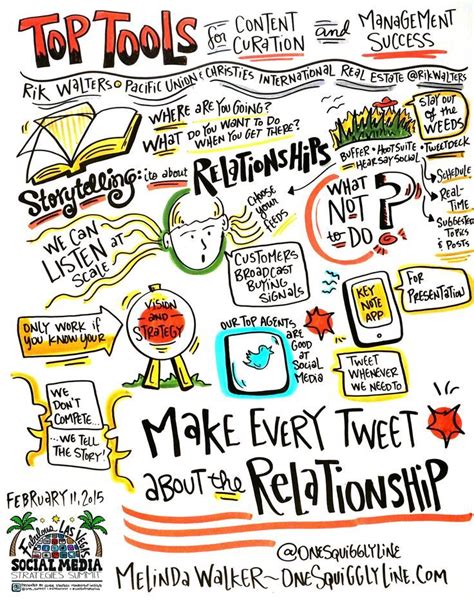 TOP TOOLS for CONTENT CURATION and MANAGEMENT SUCCESS
RIK WALTERS • PACIFIC UNION & CHRISTIES INTERNATIONAL REAL ESTATE @RIKWALTERS
WHERE ARE YOU GOING?
WHAT DO YOU WANT TO DO
WHEN YOU GET THERE?
STAY OUT
OF THE
WEEDS
BUFFER • HOOTSUITE • TWEETDECK
HEARSAY SOCIAL
SCHEDULE
REAL-
TIME
SUGGESTED
TOPICS
& POSTS
STORYTELLING: it's about RELATIONSHIPS
WE CAN
LISTEN AT
SCALE
CHOOSE
YOUR
FEEDS
WHAT
NOT
to DO?
CUSTOMERS
BROADCAST
BUYING
SIGNALS
ONLY WORK IF
YOU KNOW YOUR
VISION
AND
STRATEGY
OUR TOP AGENTS
ARE
GOOD
AT
SOCIAL
MEDIA
KEY
NOTE
APP
FOR
PRESENTATION
TWEET
WHENEVER
WE NEED TO
WE
DON'T
COMPETE...
...WE TELL
THE STORY!
MAKE EVERY TWEET
ABOUT the RELATIONSHIP
FEBRUARY 11, 2015
FABULOUS LAS VEGAS
SOCIAL MEDIA
STRATEGIES SUMMIT
@ONESQUIGGLYLINE
MELINDA WALKER~ONESQUIGGLYLINE.COM